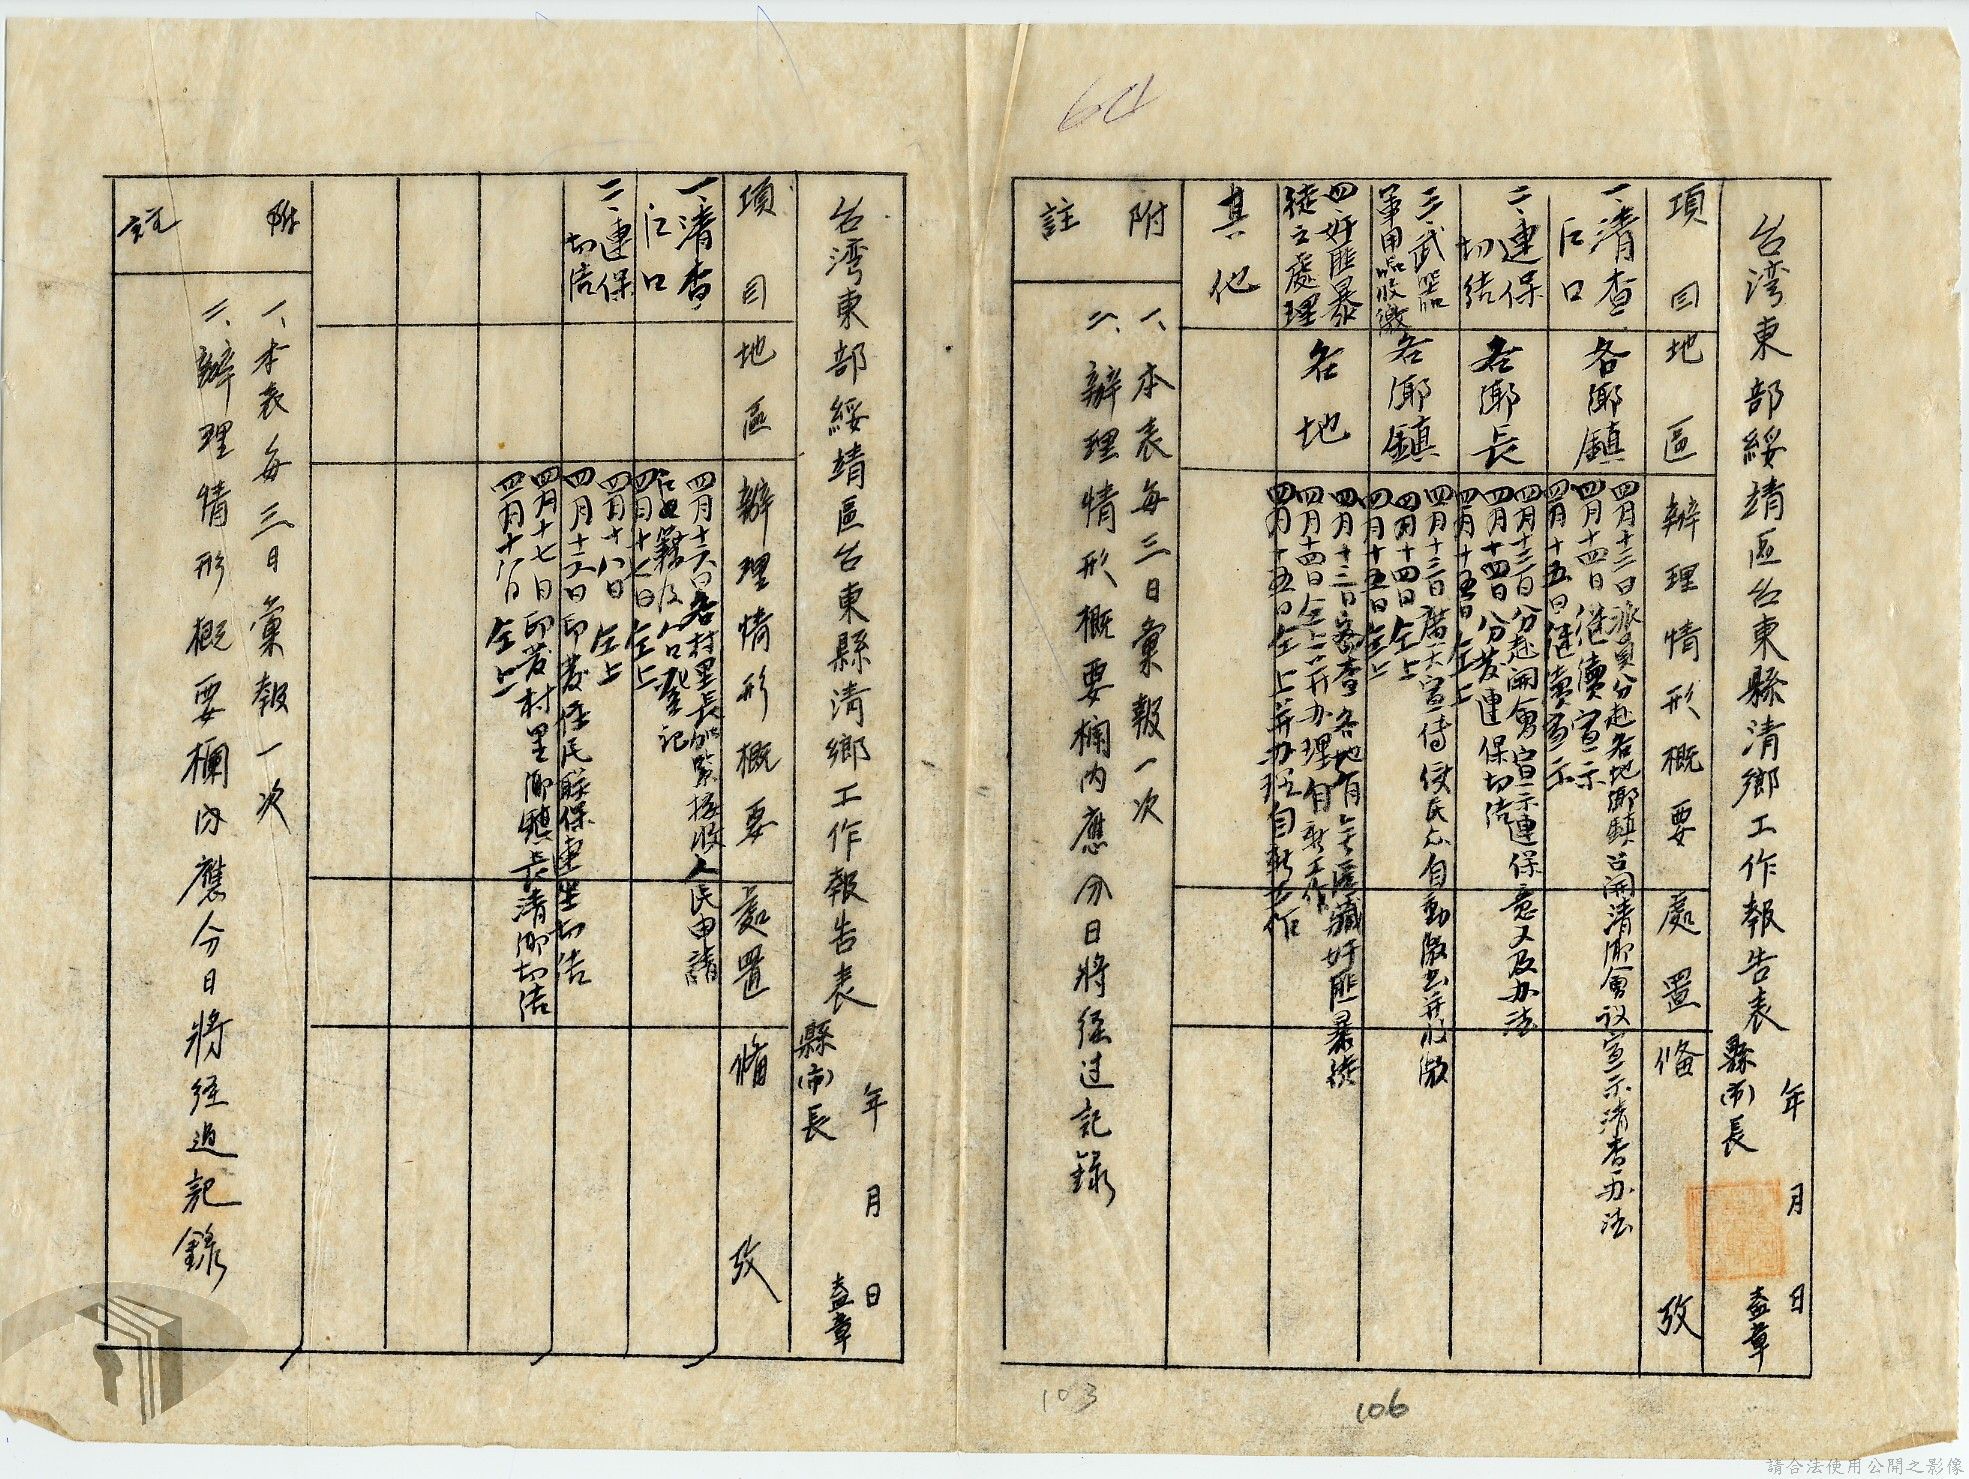 64
台湾東部綏靖區台東縣清鄉工作報告表
年 月 日
縣(市)長 蓋章
項目 地區 辦理情形概要 處置 俻攷
一、清查
户口
各鄉鎮
四月十三日派員分赴各地鄉鎮召開清鄉會议宣示清查办法
四月十四日 继續宣示
四月十五日继續宣示
二、連保
切結
各鄉長
四月十三日分赴開會宣示連保意义及办法
四月十四日分发連保切结
四月十五日 仝上
三、武器
軍用品收繳
各鄉鎮
四月十三日廣大宣传使民众自動繳出并收繳
四月十四日 仝上
四月十五日 仝上
四、奸匪暴
徒之處理
各地
四月十三日密查各地有無匿藏奸匪暴徒
四月十四日仝上并办理自新工作
四月十五日仝上并办理自新工作
其他
附註
一、本表每三日彙報一次
二、辦理情形概要欄内應分日將经过記錄
台湾東部綏靖區台東縣清鄉工作報告表
年 月 日
縣(市)長 蓋章
項目 地區 辦理情形概要 處置 俻攷
一、清查
户口
四月十六日各村里長加緊接收人民申請
户口登記
四月十七日 仝上
四月十八日 仝上
二、連保
切结
四月十六日印發住民联保連坐切结
四月十七日印发村里鄉鎮長清鄉切结
四月十八日 仝上
附註
一、本表每三日彙報一次
二、辦理情形概要欄内應分日將经過記錄
103
106
請合法使用公開之影像